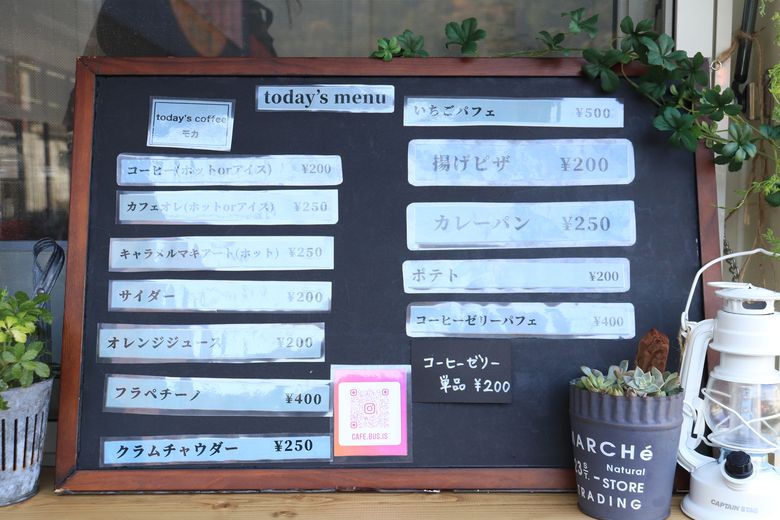 today's menu
today's coffee
モカ
コーヒー(ホットorアイス) ¥200
カフェオレ(ホットorアイス) ¥250
キャラメルマキアート(ホット) ¥250
サイダー ¥200
オレンジジュース ¥200
フラペチーノ ¥400
クラムチャウダー ¥250
いちごパフェ ¥500
揚げピザ ¥200
カレーパン ¥250
ポテト ¥200
コーヒーゼリーパフェ ¥400
コーヒーゼリー
単品 ¥200
CAFE.BUS.IS
MARCHé
Natural
STORE
TRADING
CAPTAIN STAG